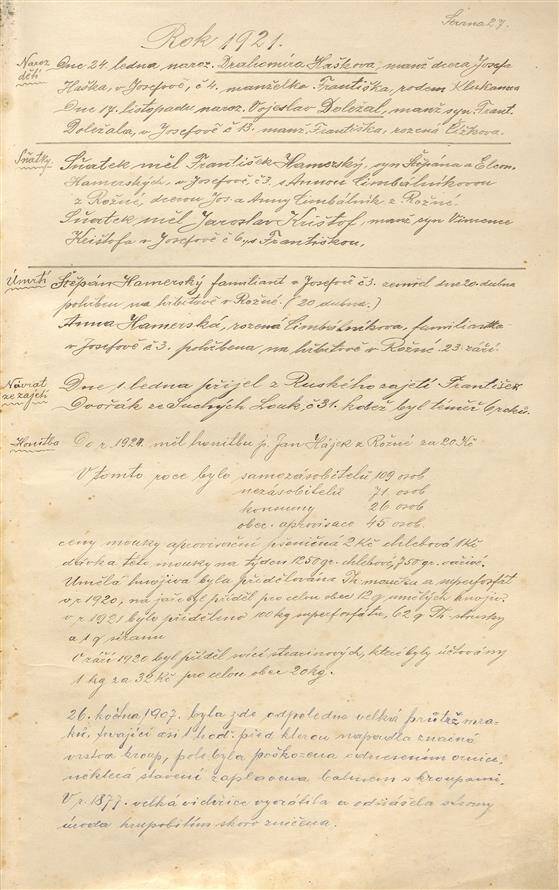 Strana 27.
Rok 1921.
Naroz. dětí
Dne 24 ledna, naroz. Drahomíra Hašková, manž dcera Josefa
Haška, v Josefově, č 4. manželka Františka, rodem Klukanova
Dne 17. listopadu naroz. Vojeslav Doležal, manž syn, Frant.
Doležala, v Josefově č 13. manž. Františka, rozená Čížkova.
Sňatky.
Sňatek měl František Hamerský, syn Štěpána a Eleon.
Hamerských, v Josefově č 3, s Annou Cimbálníkovou
z Rožné, dcerou Jos a Anny Cimbálník z Rožné.
Sňatek měl Jaroslav Krištof, manž syn Vincence
Krištofa v Josefově č 6, s Františkou.
Úmrtí
Štěpán Hamerský familiant v Josefově č 3. zemřel dne 20. dubna
pohřben na hřbitově v Rožné. (20 dubna.)
Anna Hamerská, rozená Cimbálníkova, familiantka
v Josefově č 3. pohřbena na hřbitově v Rožné. 23. září.
Návrat ze zajetí
Dne 1. ledna přijel z Ruského zajetí František
Dvořák ze Suchých Louk, č 31. kdež byl téměř 6 roků.
Honitba
Do r. 1921. měl honitbu p. Jan Hájek z Rožné za 20 Kč
V tomto roce bylo samozásobitelů 109 osob
nezásobitelů 71 osob
komuny 26 osob
obec. aprovisace 45 osob.
ceny mouky aprovisační pšeničná 2 Kč chlebová 1 Kč
dávka této mouky na týden 1250 gr. chlebové, 750 gr. vařivé.
Umělá hnojiva byla přidělována Th. moučka a superfosfát
v r 1920, na jaře byl příděl pro celou obec 12 q umělých hnojiv
v r 1921 bylo přiděleno 100 kg superfosfátu, 62 q Th. strusky
a 1 q síranu
V září 1920 byl příděl svící stearinových, které byly účtovány
1 kg za 32 Kč pro celou obec 20 kg.
26. května 1907. byla zde odpoledne velká průtrž mra-
ků, trvající asi 1 hod: před kterou napadla značná
vrstva krup, pole byla poškozena odnesením ornice,
některá stavení zaplavena bahnem s kroupami.
V r. 1877. velká vichřice vyvrátila a odnášela stromy
úroda krupobitím skoro zničena.